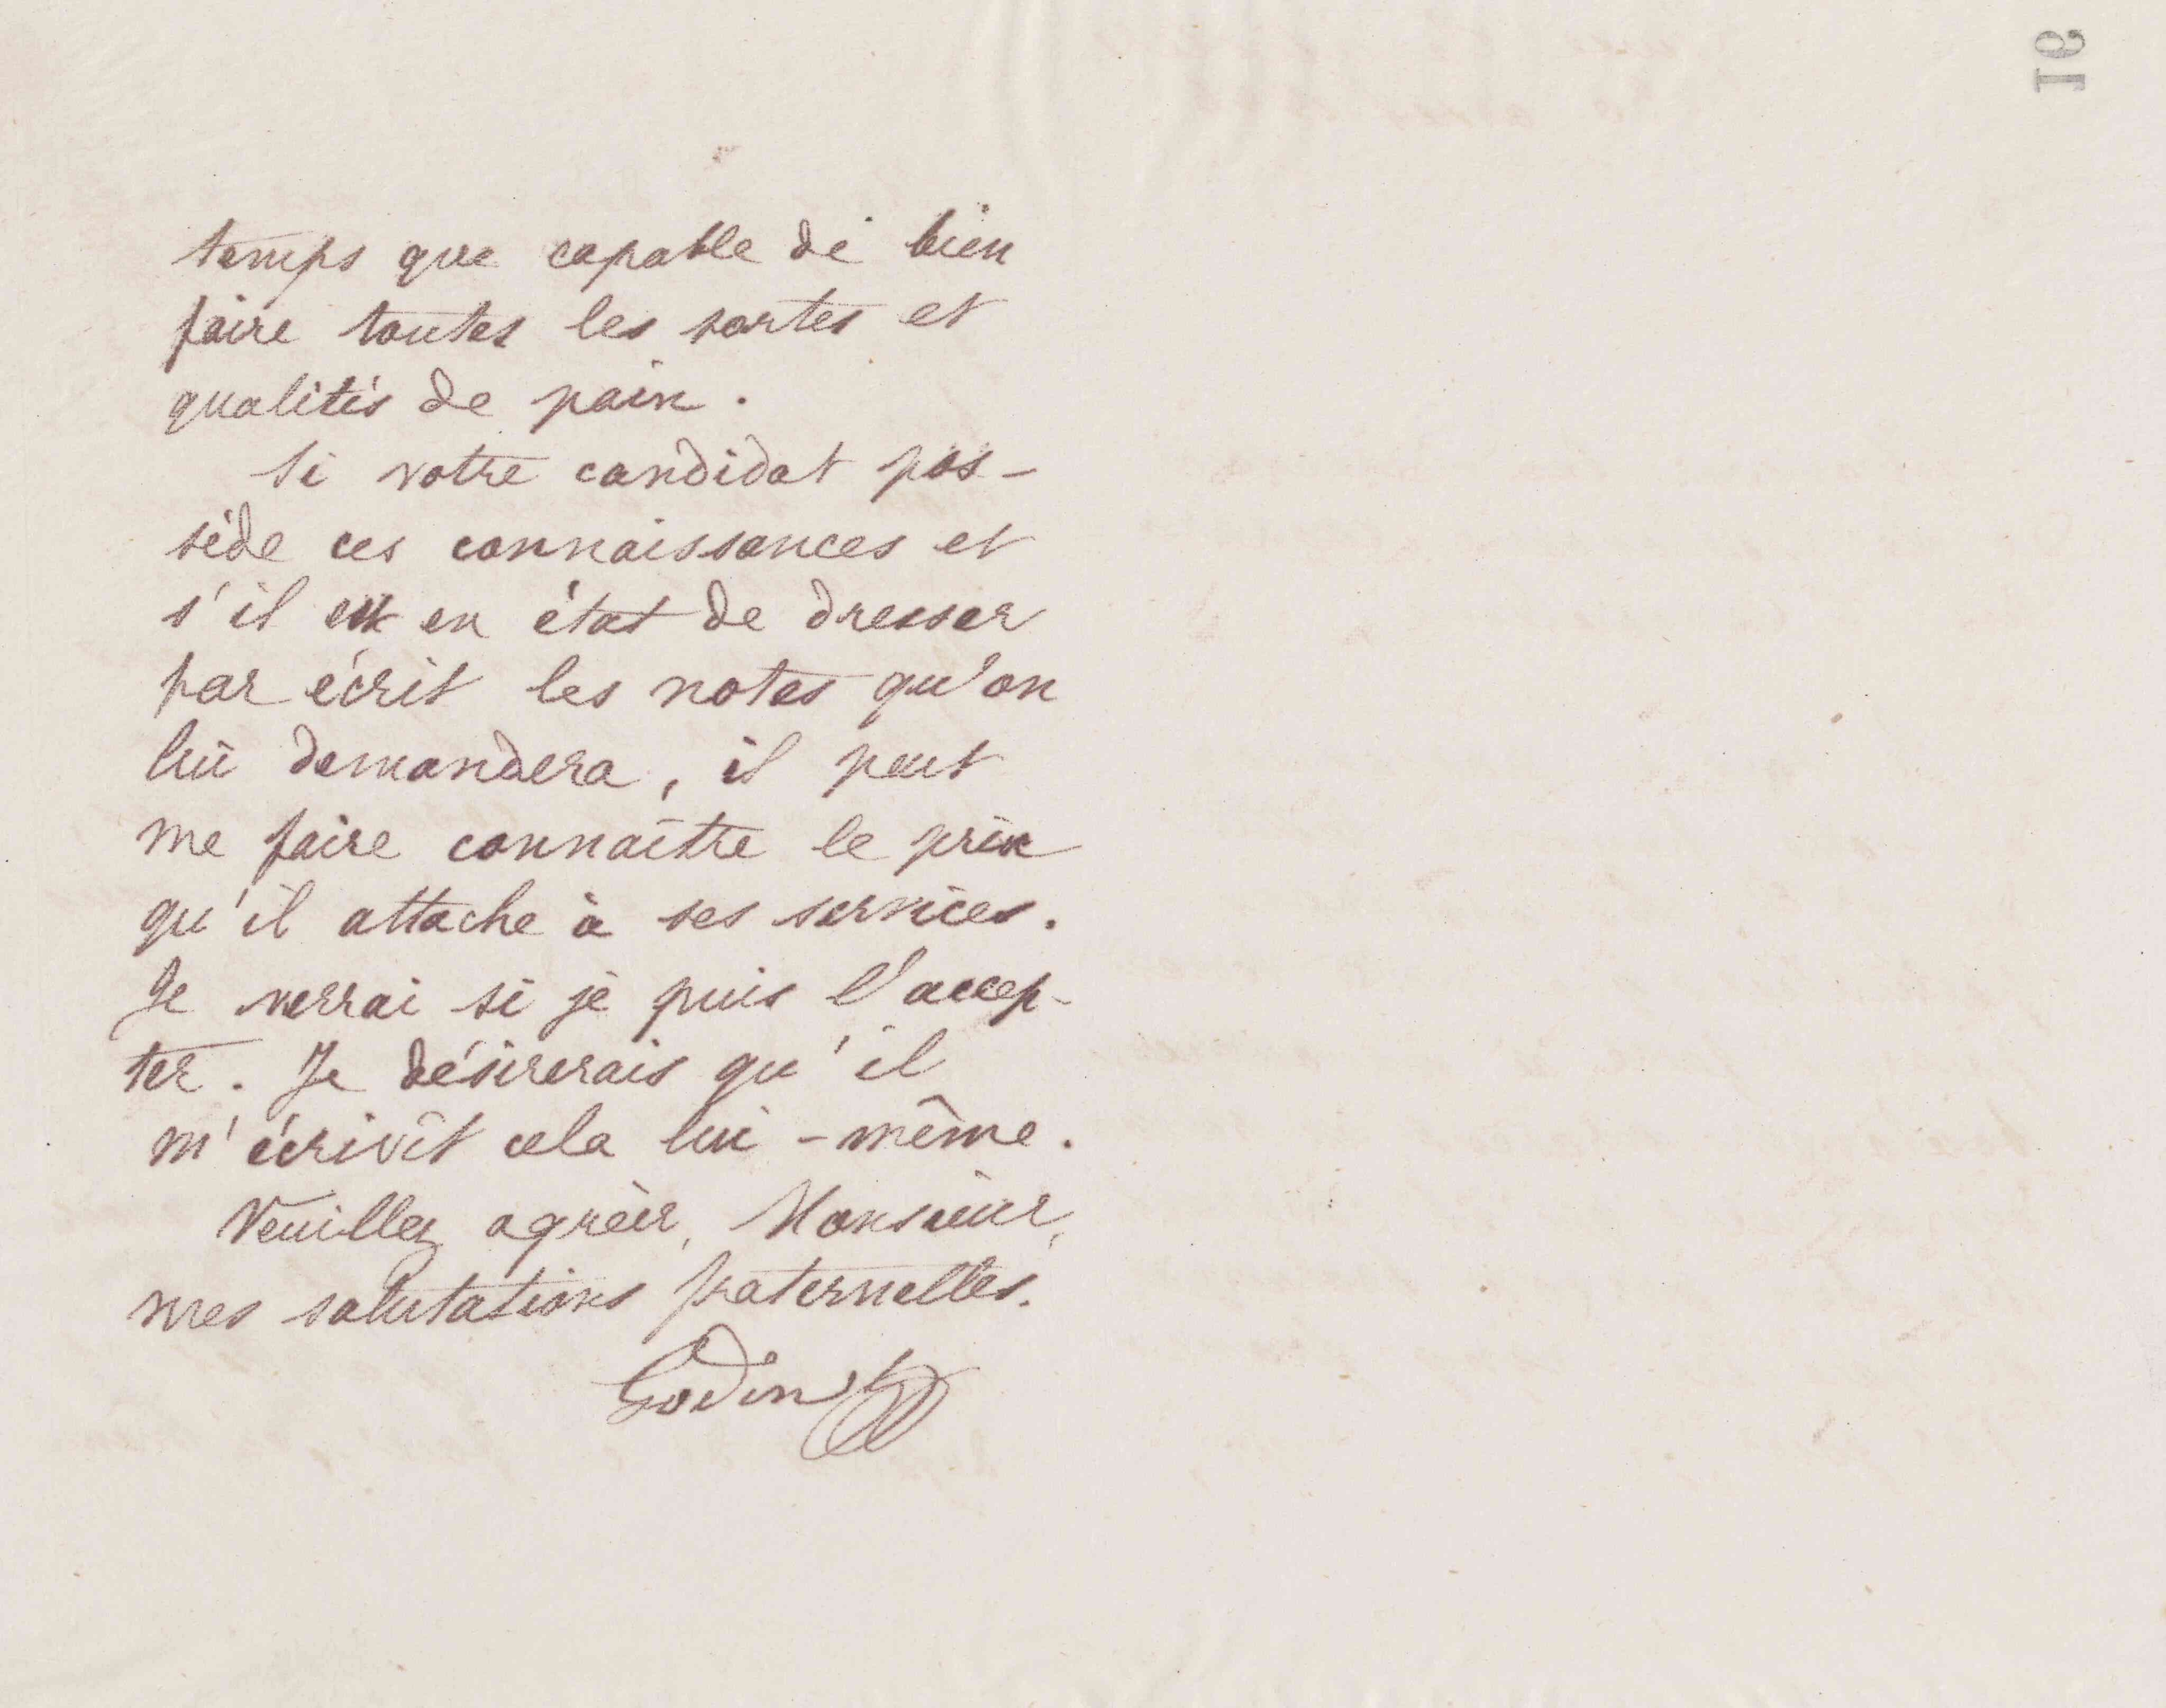 temps que capable de bien
faire toutes les sortes et
qualités de pain.
Si votre candidat pos-
sède ces connaissances et
s'il est en état de dresser
par écrit les notes qu'on
lui demandera, il peut
me faire connaître le prix
qu'il attache à ses services.
Je verrai si je puis l'accep-
ter. Je désirerais qu'il
m'écrivît cela lui-même.
Veuillez agréer, Monsieur,
mes salutations fraternelles.
Godin